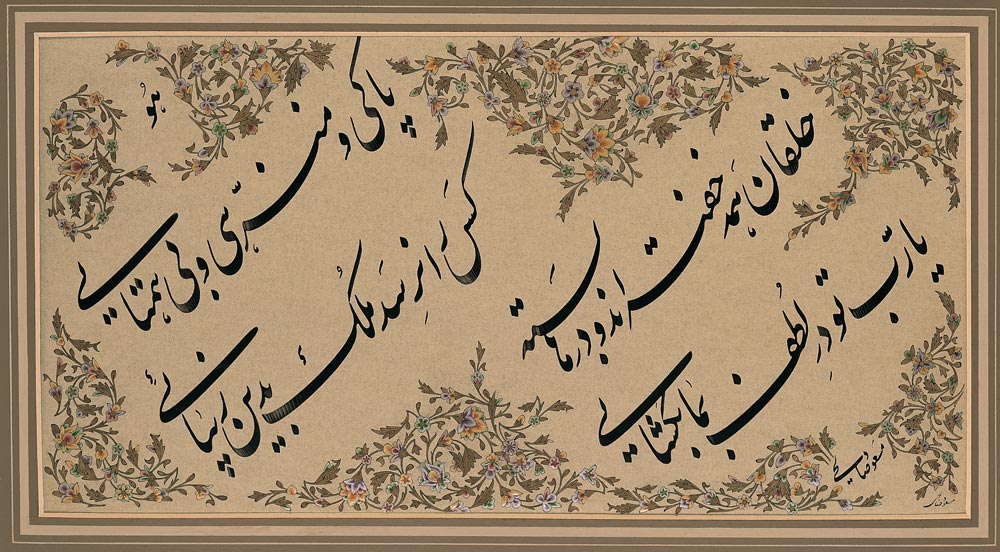 هُو
پاکی و منزّهی و بی همتایی
کَس را نرِسَد مُلک بدین زیبائی
خلقان همه خفته اند و درها بسته
یارَبّ تو درِ لُطف بما بگشایی
مسعود